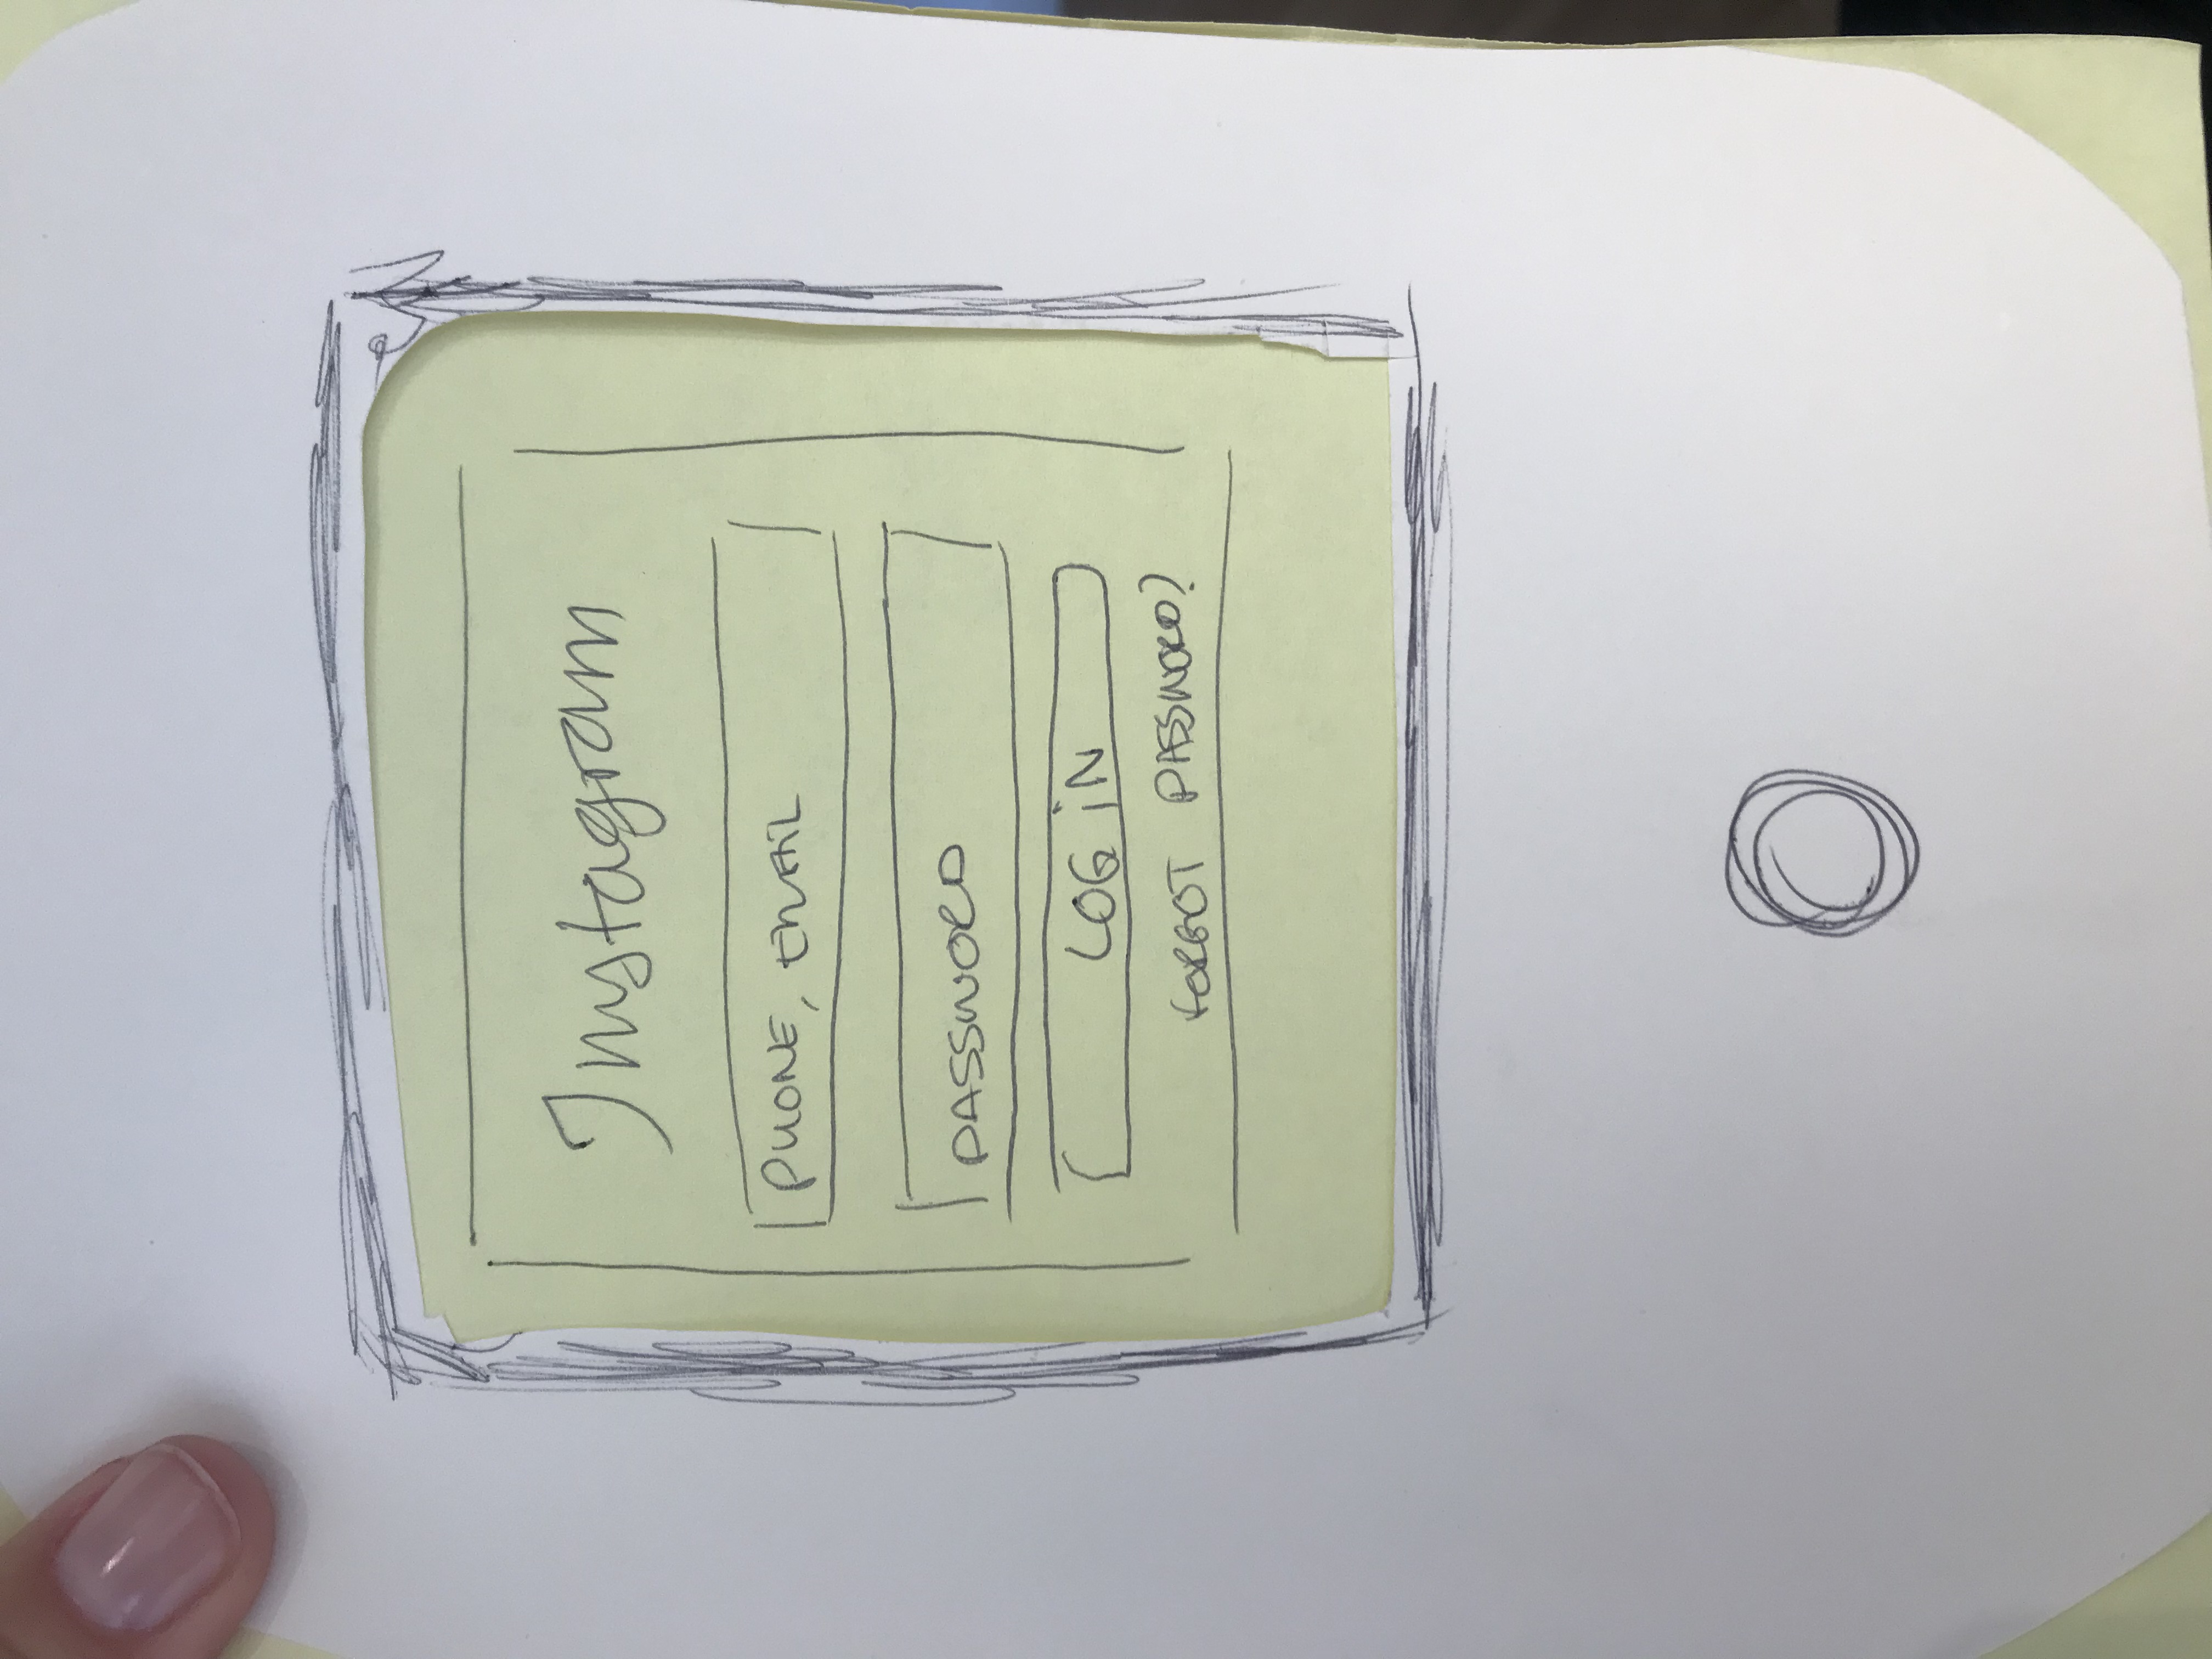 Instagram
PHONE, EMAIL
PASSWORD
LOG iN
FORGOT PASSWORD?